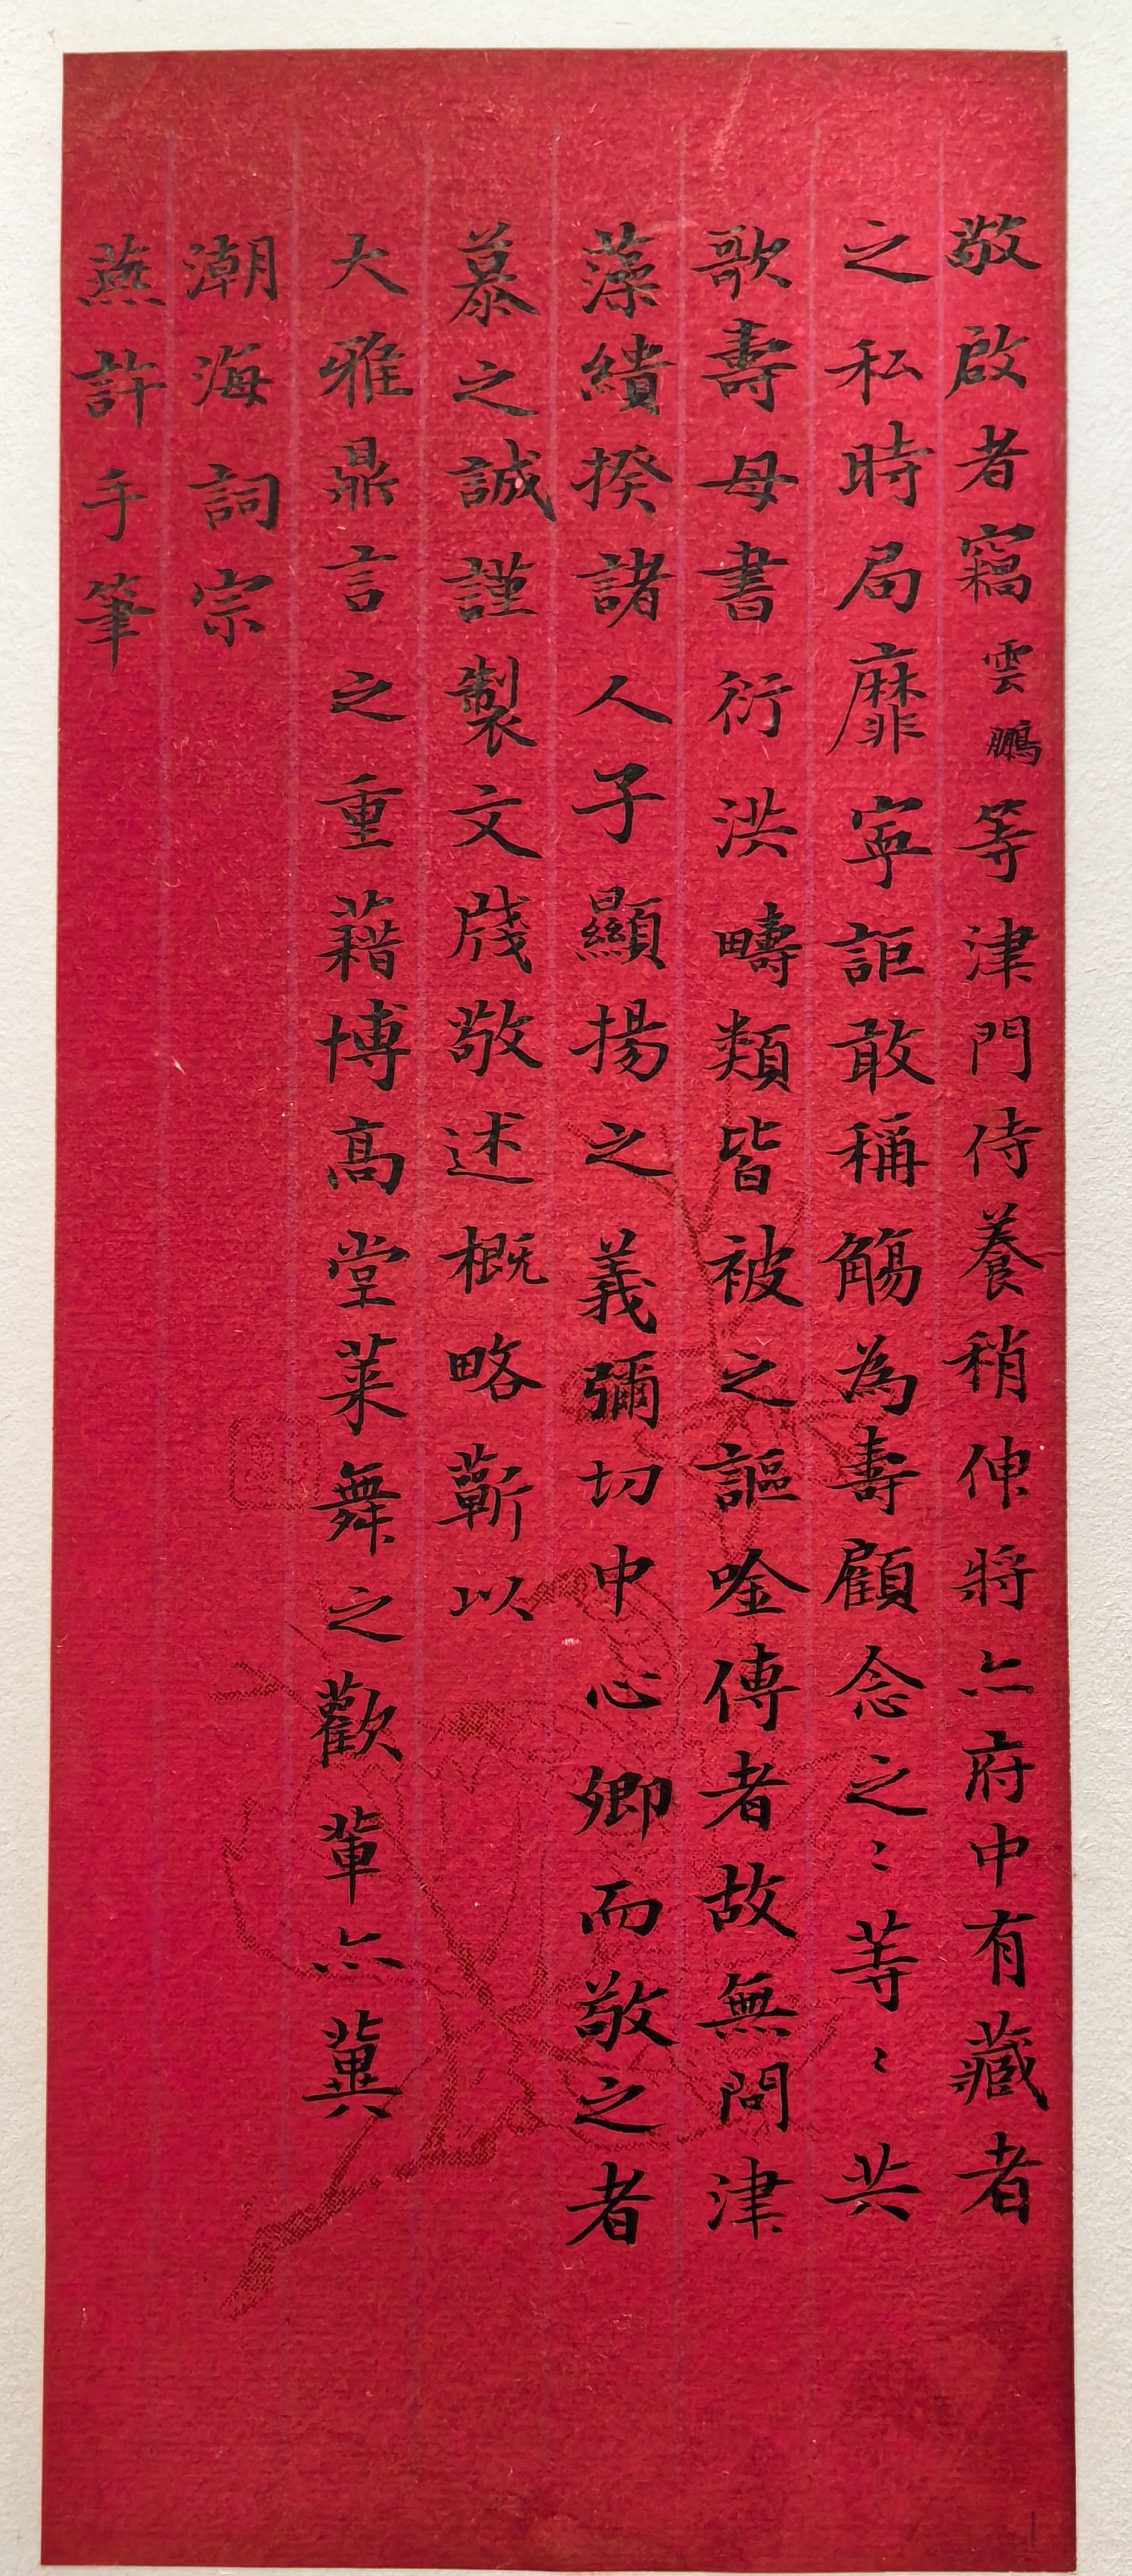 敬啟者竊雲鵬等津門侍養稍伸將亽府中有藏者
之私時局靡寧詎敢稱觴為壽顧念之〻等〻共
歌壽母書衍洪疇類皆被之謳唫傳者故無問津
藻繢揆諸人子顯揚之義彌切中心卿而敬之者
慕之誠謹製文牋敬述概略蘄以
大雅鼎言之重藉博高堂萊舞之歡葷亽冀
潮海詞宗
燕許手筆